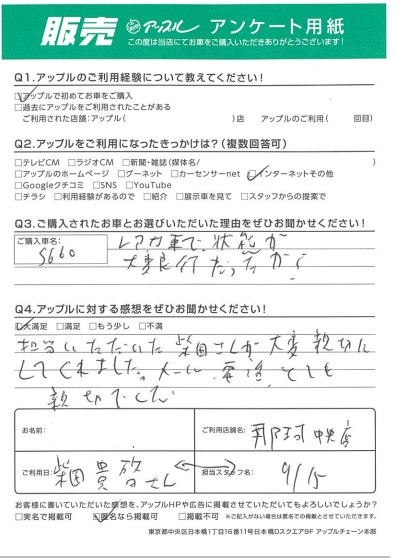 販売 アップル アンケート用紙
この度は当店にてお車をご購入いただきありがとうございます!
Q1.アップルのご利用経験について教えてください!
☑アップルで初めてお車をご購入
□過去にアップルをご利用されたことがある
ご利用された店舗:アップル( )店 アップルのご利用( 回目)
Q2.アップルをご利用になったきっかけは?(複数回答可)
□テレビCM □ラジオCM □新聞・雑誌(媒体名/ )
□アップルのホームページ □グーネット □カーセンサーnet ☑インターネットその他
□Googleクチコミ □SNS □YouTube
□チラシ □利用経験があるので □紹介 □展示車を見て □スタッフからの提案で
Q3.ご購入されたお車とお選びいただいた理由をぜひお聞かせください!
ご購入車名:
S660
レアカ車で、状態が
大変良行だったから
Q4.アップルに対する感想をぜひお聞かせください!
☑大満足 □満足 □もう少し □不満
担当いただいた柴田さんが大変親切に
してくれました。メール、電話、とても
親切でした
お名前:
ご利用店舗名:
那珂中央店
ご利用日:
柴田貴 さん
担当スタッフ名:
9/15
お客様に書いていただいた感想を、アップルHPや広告に掲載させていただいてもよろしいでしょうか?
□実名で掲載可 ☑匿名なら掲載可 □掲載不可 ※ご記入がない場合は匿名での掲載とさせていただきます。
東京都中央区日本橋1丁目16番11号日本橋Dスクエア9F アップルチェーン本部